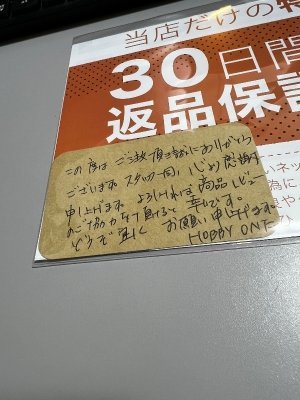 当店だけの特
30日間
返品保証
この度は ご注文頂き誠にありがとう
ございます。スタッフ一同、心より感謝
申し上げます。よろしければ商品レビュー
のご協力を頂けると幸いです。
どうぞ宜しく お願い申し上げます。
HOBBY ONE
いネッ
為に